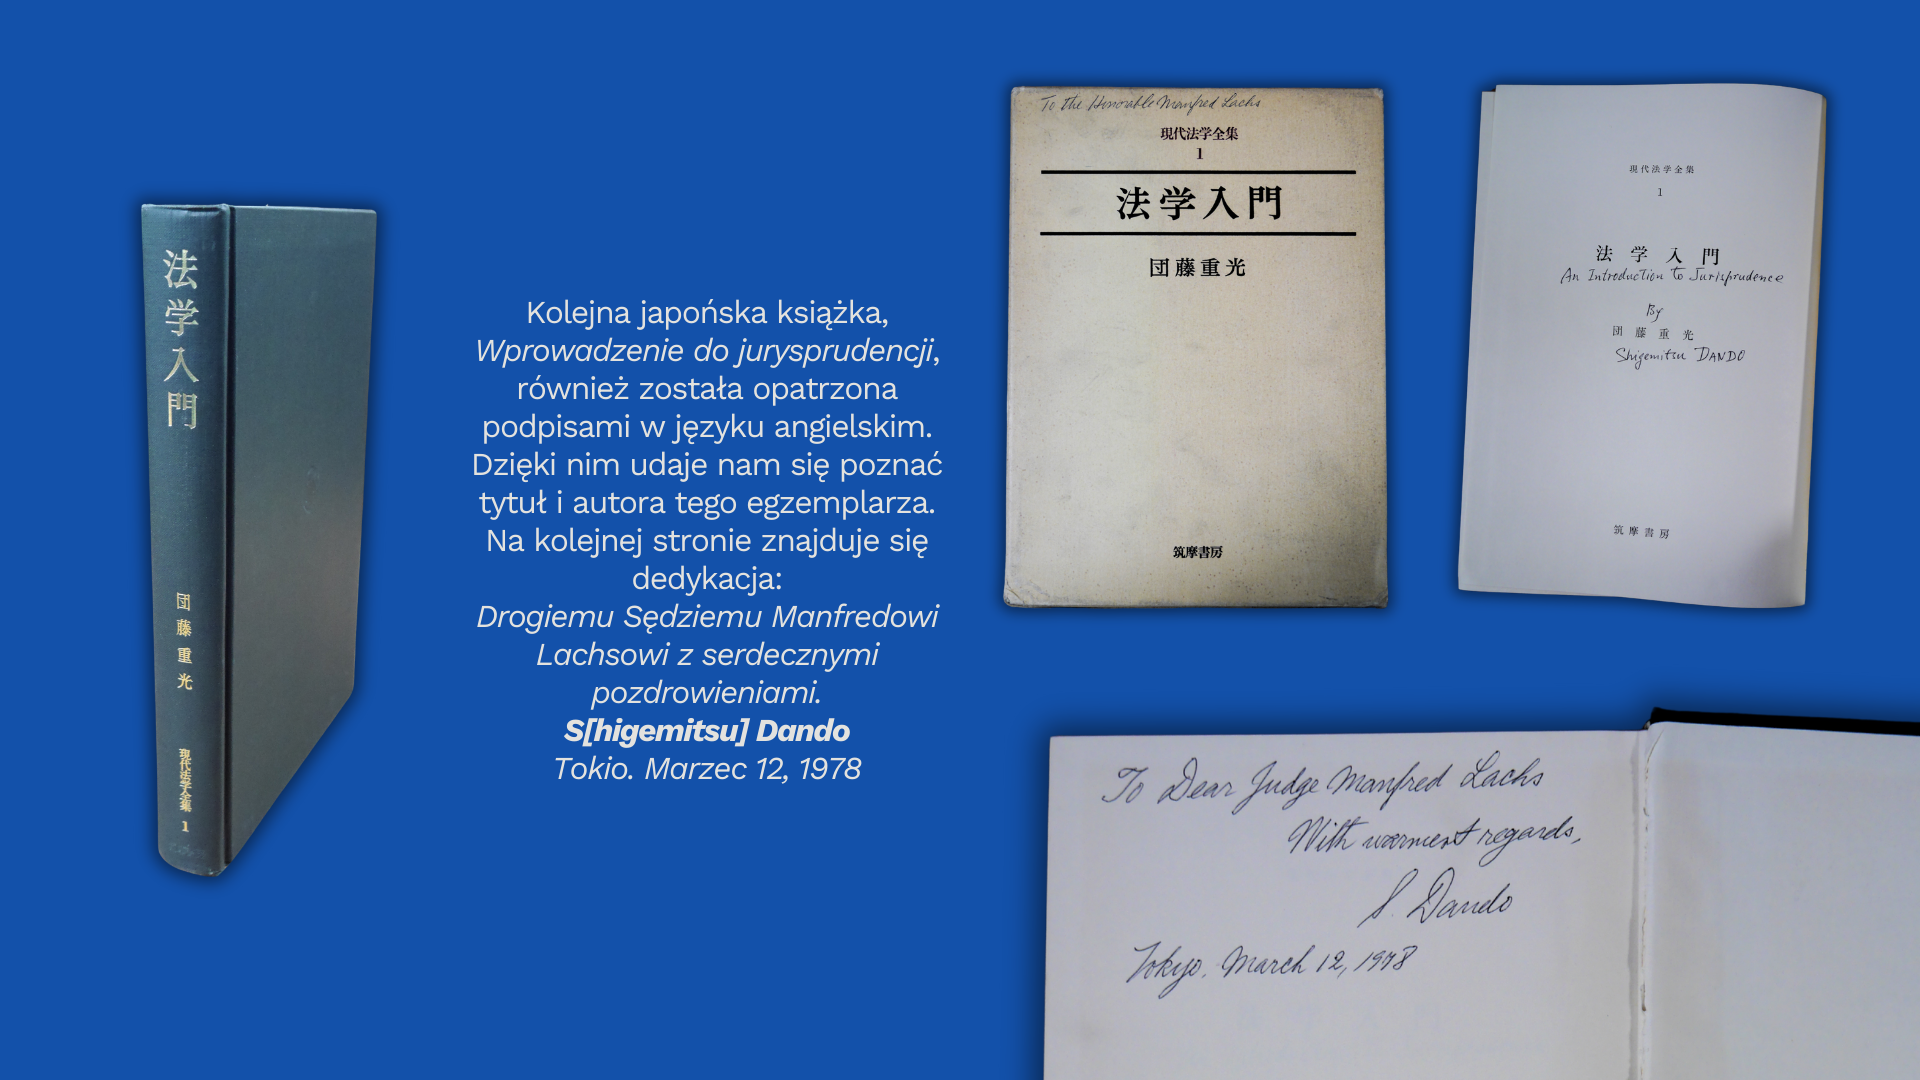 法学入門
団藤重光
現代法学全集
1
Kolejna japońska książka,
Wprowadzenie do jurysprudencji,
również została opatrzona
podpisami w języku angielskim.
Dzięki nim udaje nam się poznać
tytuł i autora tego egzemplarza.
Na kolejnej stronie znajduje się
dedykacja:
Drogiemu Sędziemu Manfredowi
Lachsowi z serdecznymi
pozdrowieniami.
S[higemitsu] Dando
Tokio. Marzec 12, 1978
To the Honorable Manfred Lachs
現代法学全集
1
法学入門
団藤重光
筑摩書房
現代法学全集
1
法学入門
An Introduction to Jurisprudence
By
団藤重光
Shigemitsu DANDO
筑摩書房
To Dear Judge Manfred Lachs
With warmest regards,
S. Dando
Tokyo. March 12, 1978